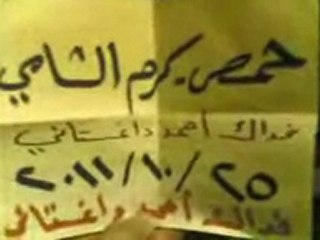 حمص-كرم الشامي
فداك أحمد داغستاني
٢٠١١/١٠/٢٥
فداك أحمد داغستاني